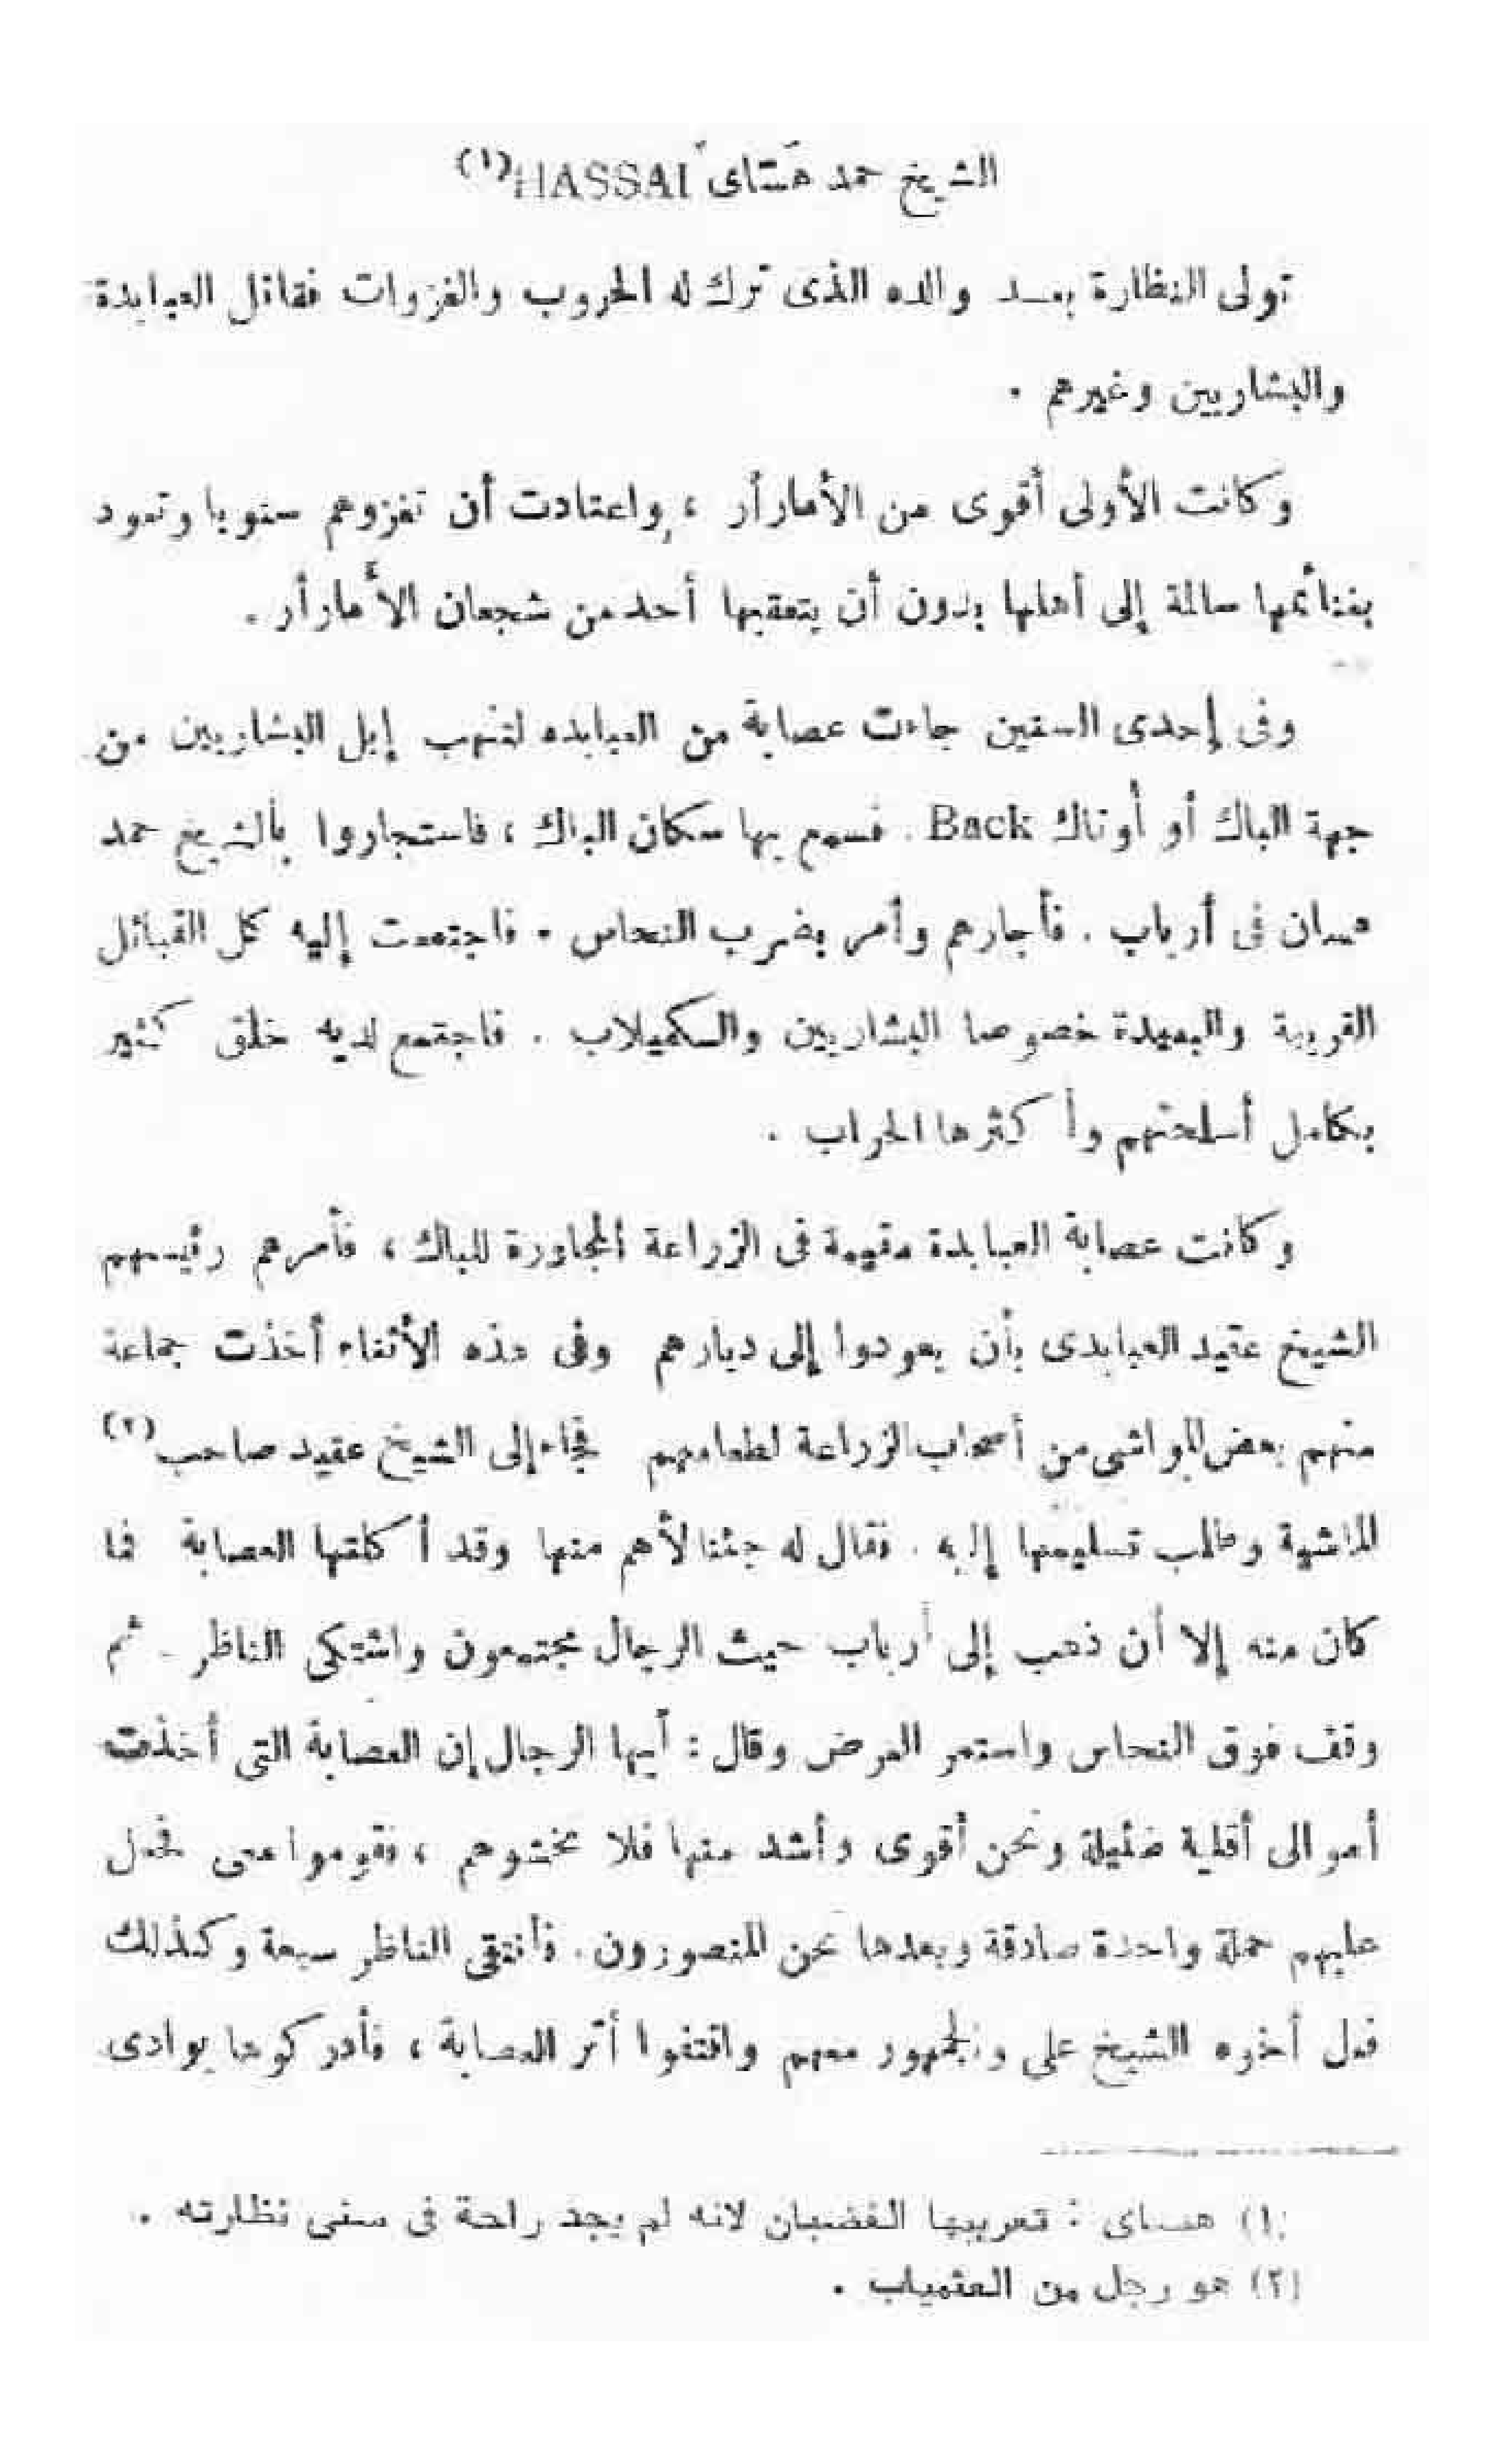 الشيخ حمد هسّاى HASSAI (١)
تولى النظارة بعد والده الذى ترك له الحروب والغزوات فقاتل العبابدة
والبشاريين وغيرهم .
وكانت الأولى أقوى من الأمارأر ، واعتادت أن تغزوهم سنويا وتعود
بغنائمها سالمة إلى أهلها بدون أن يتعقبها أحد من شجعان الأمارأر .
وفى إحدى السنين جاءت عصابة من العبابده لتنهب إبل البشاريين من
جهة الباك أو أوتاك Back . فسمع بها سكان الباك ، فاستجاروا بالشيخ حمد
حسان فى أرباب . فأجارهم وأمر بضرب النحاس . فاجتمعت إليه كل القبائل
القريبة والبعيدة خصوصا البشاريين والكميلاب . فاجتمع لديه خلق كثير
بكامل أسلحتهم وأكثرها الحراب .
وكانت عصابة العبابدة مقيمة فى الزراعة المجاورة للباك ، فأمرهم رئيسهم
الشيخ عقيد العبابدى بأن يعودوا إلى ديارهم وفى هذه الأثناء أخذت جماعة
منهم بعض المواشى من أصحاب الزراعة لطعامهم فجاء إلى الشيخ عقيد صاحب (٢)
الماشية وطلب تسليمها إليه . فقال له جئنا لأهم منها وقد أكلتها العصابة فما
كان منه إلا أن ذهب إلى أرباب حيث الرجال مجتمعون واشتكى الناظر . ثم
وقف فوق النحاس واستمر العرض وقال : أيها الرجال إن العصابة التى أخذت
أموالى أقلية ضئيلة ونحن أقوى وأشد منها فلا تخشوهم ، فقوموا معى نحمل
عليهم حملة واحدة صادقة وبعدها نحن المنصورون . فأنتقى الناظر سبعة وكذلك
فعل أخوه الشيخ على والجمهور معهم واقتفوا أثر العصابة ، فأدركوها بوادى
(١) هساى : تعريبها الغضبان لانه لم يجد راحة فى سنى نظارته .
(٢) هو رجل من العثمياب .